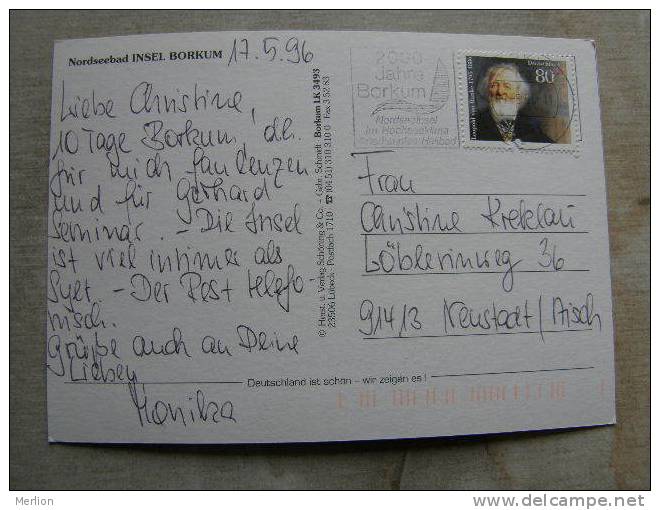 Nordseebad INSEL BORKUM
17.5.96
Liebe Christine,
10 Tage Borkum, d.h.
für mich faulenzen
und für Gerhard
Seminar. - Die Insel
ist viel intimer als
Sylt. - Der Rest telefo-
nisch.
Grüße auch an Deine
Lieben
Monika
© Herst. u. Verlag Schöning & Co. - Gebr. Schmidt · Borkum LK 3493
23506 Lübeck · Postfach 1710 · ☎ (04 51) 310 310 0 · Fax 3 52 83
2000
Jahre
Borkum
Nordseeinsel
im Hochseeklima
80
Leopold von Ranke 1795-1886
Frau
Christine Kreklau
Löblerinweg 36
91413 Neustadt/Aisch
Deutschland ist schön – wir zeigen es!
Merlion
http://www.delcampe.net